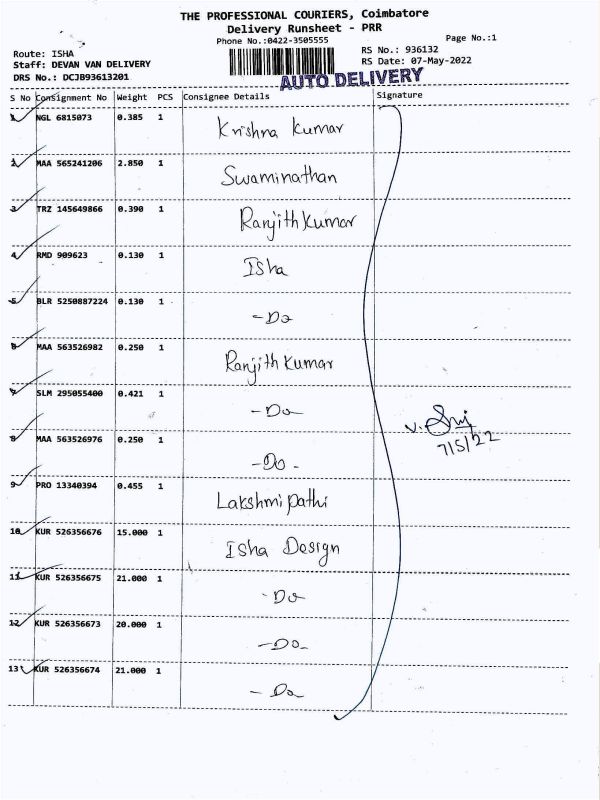 THE PROFESSIONAL COURIERS, Coimbatore
Delivery Runsheet - PRR
Phone No.:0422-3505555
Page No.:1
Route: ISHA
RS No.: 936132
Staff: DEVAN VAN DELIVERY
RS Date: 07-May-2022
DRS No.: DCJB93613201
AUTO DELIVERY
S No Consignment No Weight PCS Consignee Details Signature
1 NGL 6815073 0.385 1 Krishna Kumar
2 MAA 565241206 2.850 1 Swaminathan
3 TRZ 145649866 0.390 1 Ranjith Kumar
4 RMD 909623 0.130 1 Isha
5 BLR 5250887224 0.130 1 - Do
6 MAA 563526982 0.250 1 Ranjith Kumar
7 SLM 295055400 0.421 1 - Do -
8 MAA 563526976 0.250 1 - Do -
9 PRO 13340394 0.455 1 Lakshmi pathi
10 KUR 526356676 15.000 1 Isha Design
11 KUR 526356675 21.000 1 - Do
12 KUR 526356673 20.000 1 - Do -
13 KUR 526356674 21.000 1 - Do
7/5/22